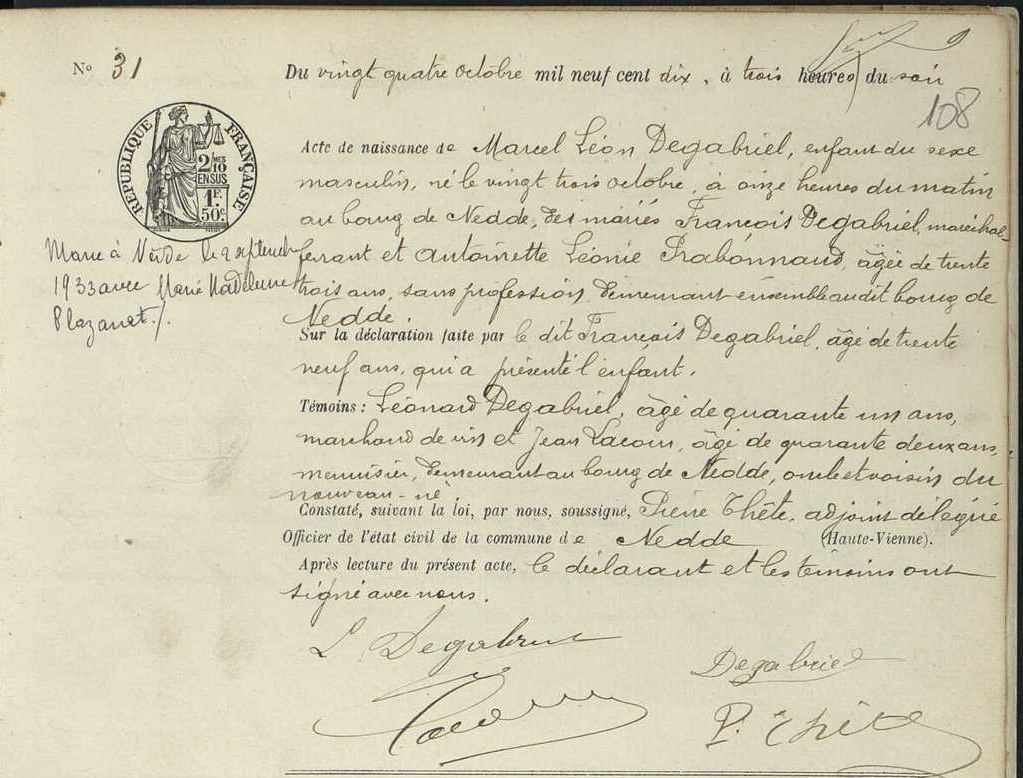 Nº 31
Du vingt quatre octobre mil neuf cent dix, à trois heures du soir
108
RÉPUBLIQUE FRANÇAISE
2/10 MES
EN SUS
1F.
50c
Acte de naissance de Marcel Léon Degabriel, enfant du sexe
masculin, né le vingt trois octobre, à onze heures du matin
au bourg de Nedde, des mariés François Degabriel, maréchal-
ferrant et Antoinette Léonie Trabonnaud, âgée de trente
trois ans, sans profession, demeurant ensemble audit bourg de
Nedde.
Marié à Nedde le 2 septembre
1933 avec Marie Madeleine
Plazanet./.
Sur la déclaration faite par le dit François Degabriel, âgé de trente
neuf ans, qui a présenté l'enfant.
Témoins : Léonard Degabriel, âgé de quarante un ans,
marchand de vin et Jean Lacour, âgé de quarante deux ans,
menuisier, demeurant au bourg de Nedde, oncle et voisin du
nouveau-né.
Constaté, suivant la loi, par nous, soussigné, Pierre Thête, adjoint délégué
Officier de l'état civil de la commune de Nedde (Haute-Vienne).
Après lecture du présent acte, le déclarant et les témoins ont
signé avec nous.
L Degabriel
Degabriel
P. Thête